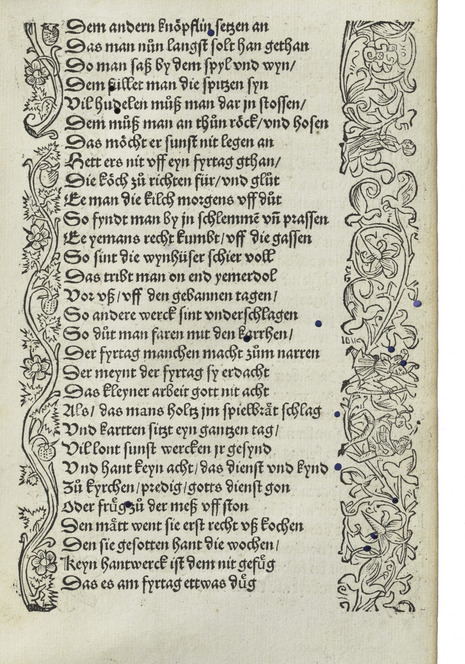 Dem andern knoͤpflin setzen an
Das man nůn langst solt han gethan
Do man saß by dem spyl vnd wyn/
Dem füllet man die spitzen syn
Vil hudelen můß man dar jn stossen/
Dem můß man an thůn roͤck/vnd hosen
Das moͤcht er sunst nit legen an
Hett ers nit vff eyn fyrtag gthan/
Die koͤch zů richten für/vnd glůt
Ee man die kilch morgens vff důt
So fyndt man by jn schlemmē vñ prassen
Ee yemans recht kumbt/vff die gassen
So sint die wynhüser schier voll
Das tribt man on end yemerdol
Vor vß/vff den gebannen tagen/
So andere werck sint vnderschlagen
So důt man faren mit den karrhen/
Der fyrtag manchen macht zům narren
Der meynt der fyrtag sy erdacht
Das kleyner arbeit gott nit acht
Als/ das mans holtz jm spielbraͤt schlag
Vnd kartten sitzt eyn gantzen tag/
Vil lont sunst wercken jr gesynd
Vnd hant keyn acht/das dienst vnd kynd
Zů kyrchen/predig/gotts dienst gon
Oder fruͤg zů der meß vff ston
Den maͤtt went sie erst recht vß kochen
Den sie gesotten hant die wochen/
Keyn hantwerck ist dem nit gefuͤg
Das es am fyrtag ettwas duͤg